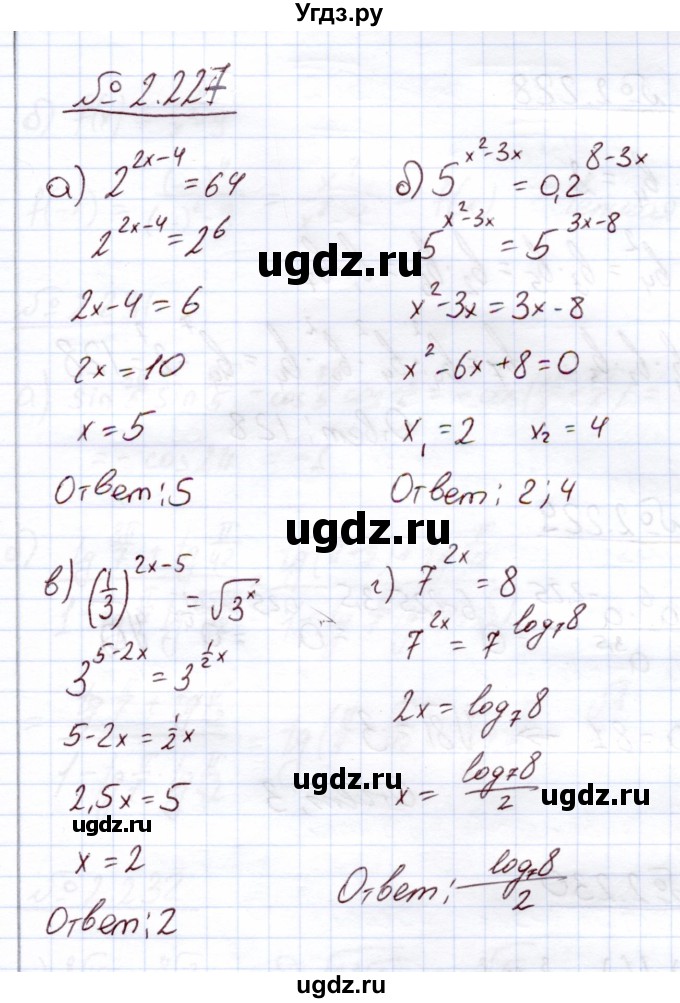 Угдз.ру
№ 2.227
а) 2^{2x-4} = 64
2^{2x-4} = 2^6
2x-4 = 6
2x = 10
x = 5
Ответ: 5
б) 5^{x²-3x} = 0,2^{8-3x}
5^{x²-3x} = 5^{3x-8}
x²-3x = 3x-8
x²-6x+8=0
x₁=2 x₂=4
Ответ: 2; 4
ugdz.ru
ugdz.ru
в) (1/3)^{2x-5} = √3^x
3^{5-2x} = 3^{1/2 x}
5-2x = 1/2 x
2,5x = 5
x = 2
Ответ: 2
г) 7^{2x} = 8
7^{2x} = 7^{log₇8}
2x = log₇8
x = log₇8/2
Ответ: log₇8/2
ugdz.ru
ugdz.ru
ugdz.ru
ugdz.ru
ugdz.ru